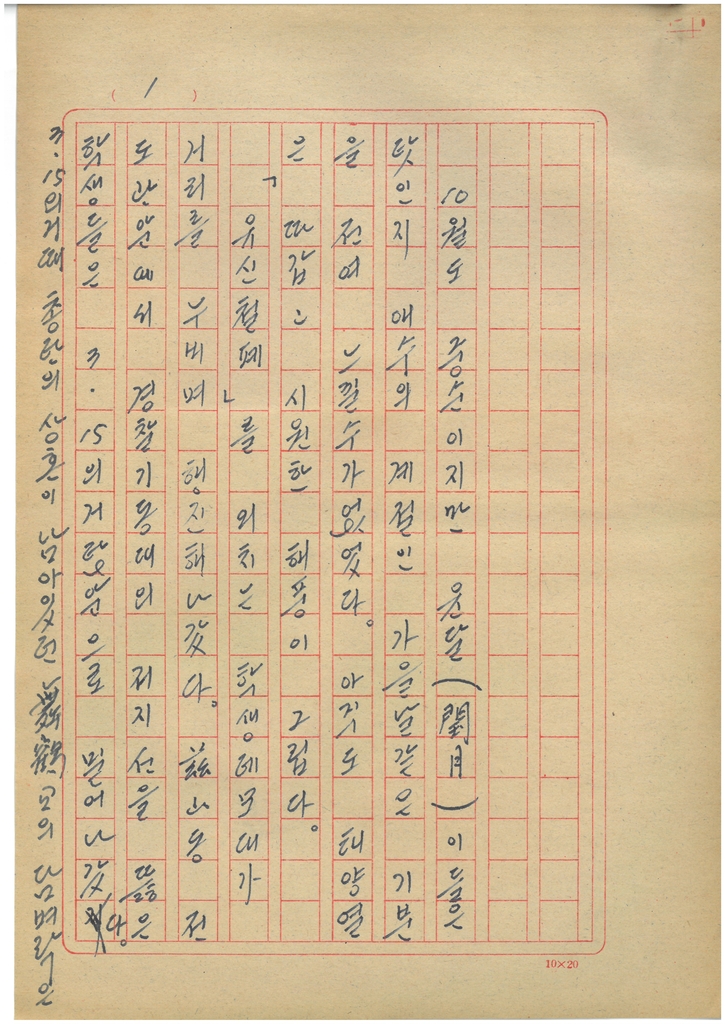 ( 1 )
10월도 중순이지만 윤달(閏月)이 들은
탓인지 애수의 계절인 가을날 같은 기분
을 전여 느낄수가 없었다. 아직도 태양열
은 따갑고 시원한 해풍이 그립다.
「유신철폐」를 외치는 학생데모대가
거리를 누비며 행진해 나갔다. 玆山동 전
도관앞에서 경찰기동대의 저지선을 뚫은
학생들은 3.15의거탑앞으로 밀어나갔다.
3.15의거때 총탄의 상흔이 남아있던 舞鶴교의 담벼락은
10×20